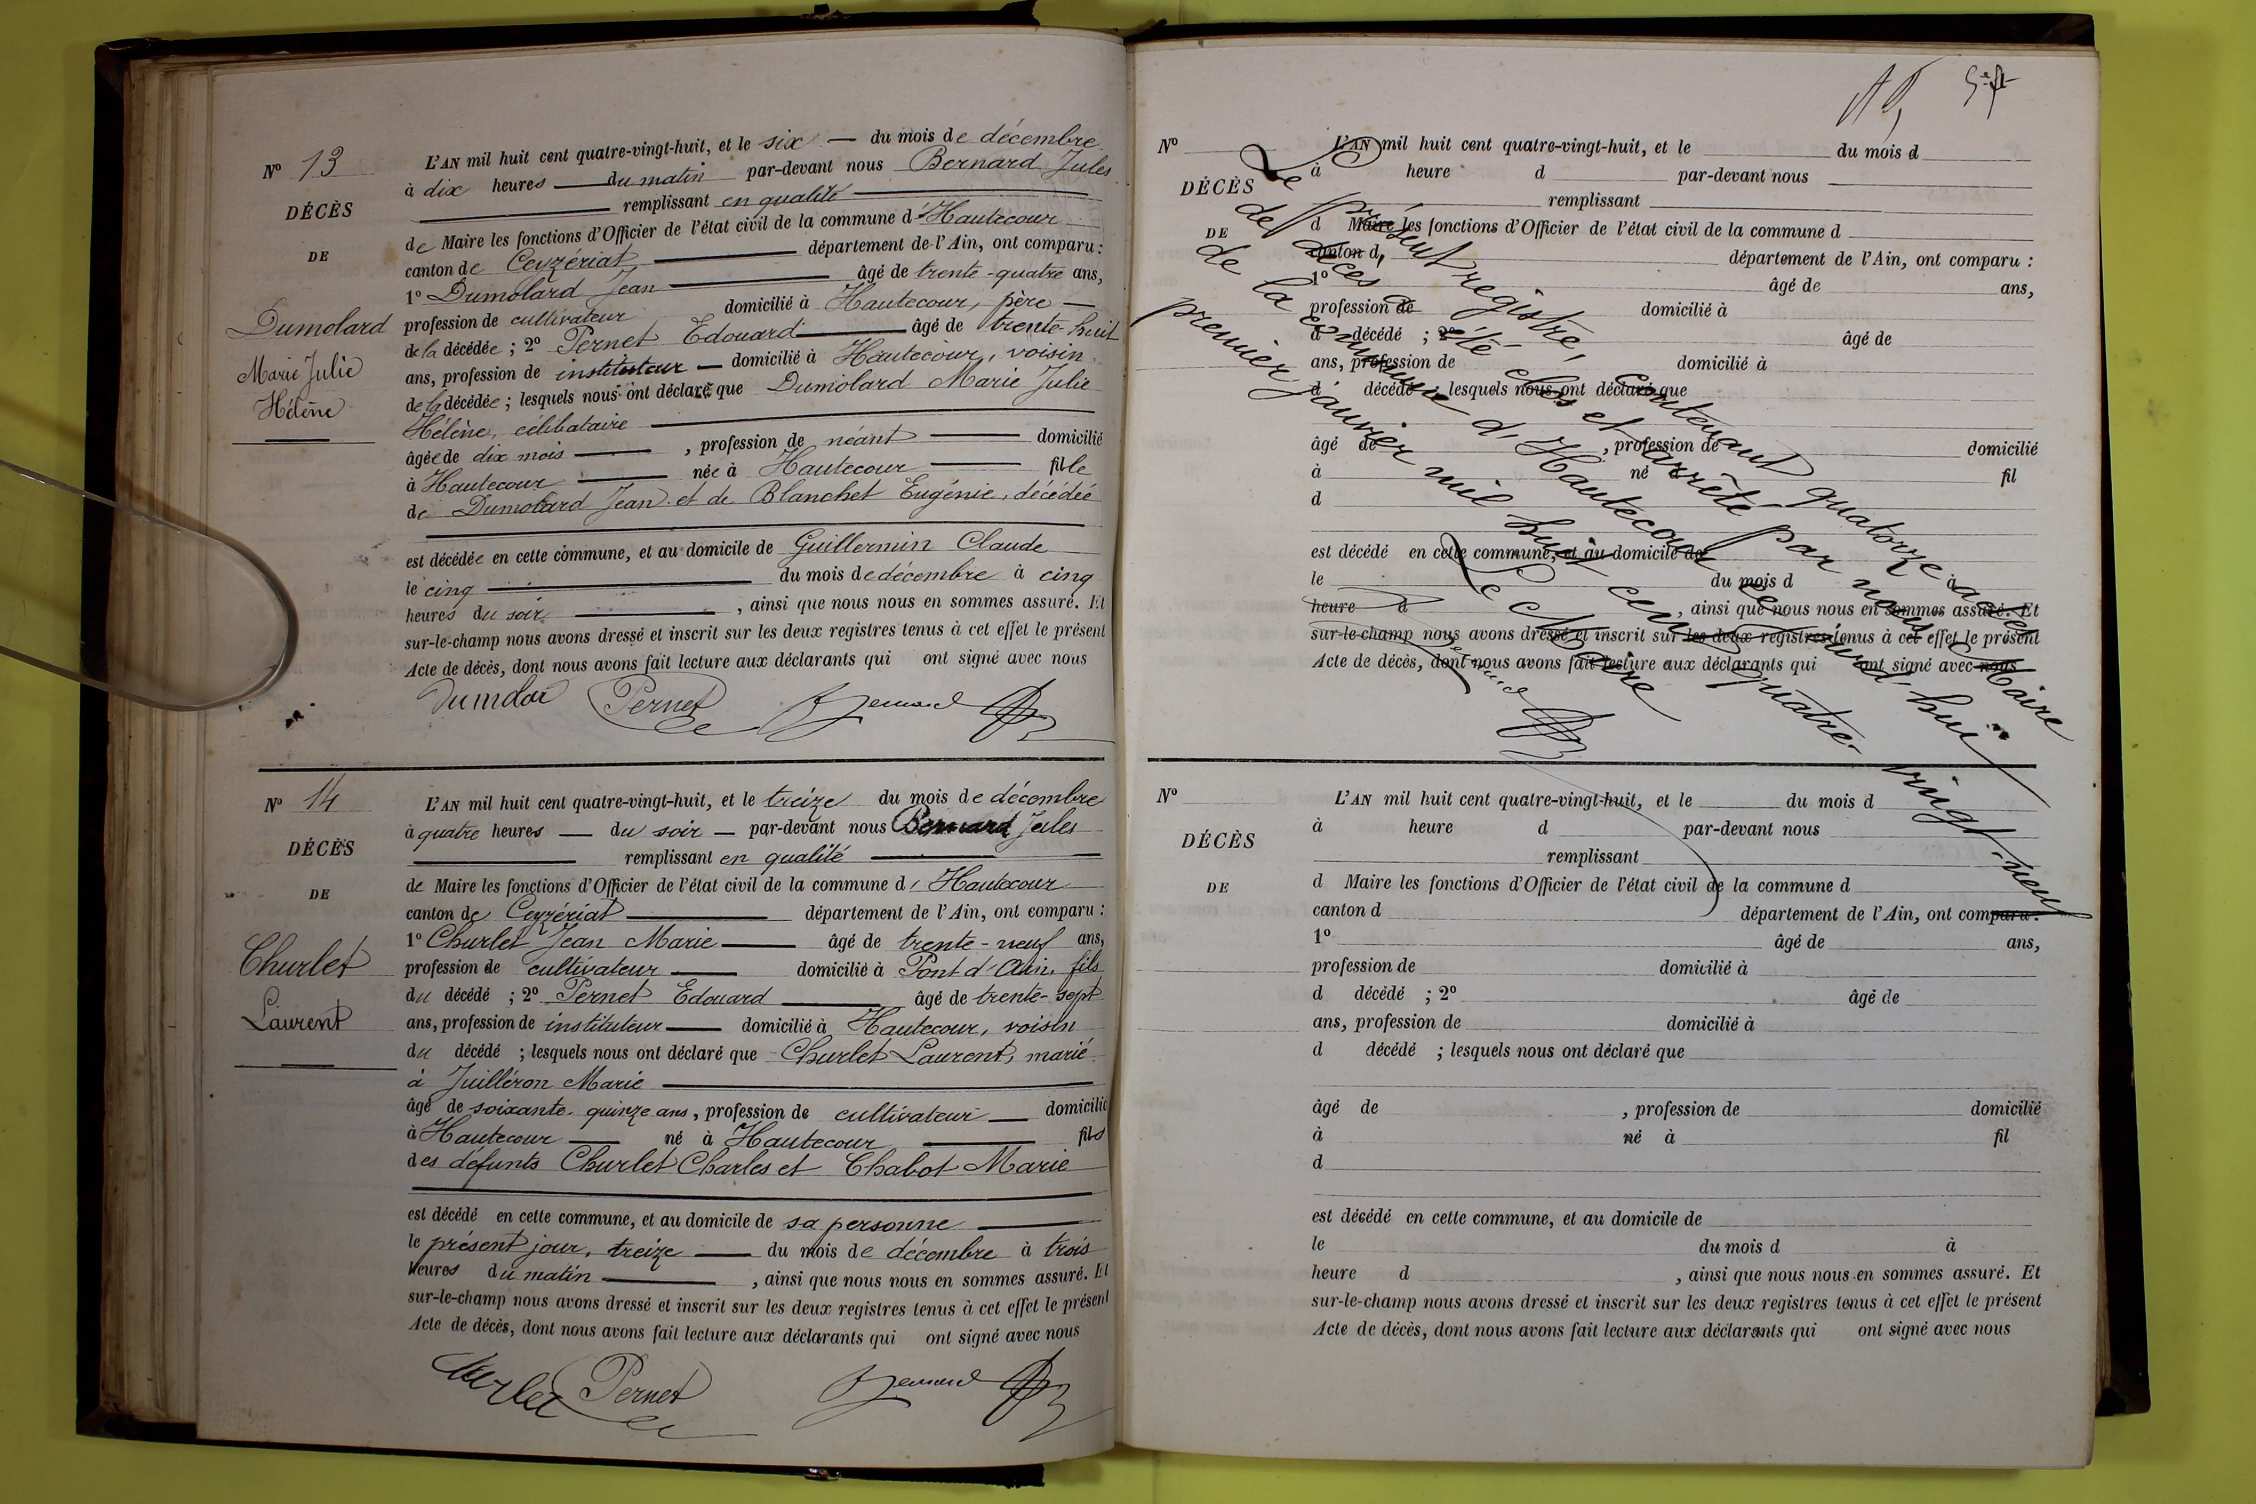 N° 13
DÉCÈS
DE
Dumolard
Marie Julie
Hélène
L'AN mil huit cent quatre-vingt-huit, et le six du mois de décembre
à dix heures du matin par-devant nous Bernard Jules
remplissant en qualité
de Maire les fonctions d'Officier de l'état civil de la commune d'Hautecour
canton de Ceyzériat département de l'Ain, ont comparu :
1° Dumolard Jean âgé de trente-quatre ans,
profession de cultivateur domicilié à Hautecour, père
de la décédée ; 2° Pernet Edouard âgé de trente-huit
ans, profession de instituteur domicilié à Hautecour, voisin
de la décédée ; lesquels nous ont déclaré que Dumolard Marie Julie
Hélène, célibataire
âgée de dix mois , profession de néant domicilié
à Hautecour née à Hautecour fille
de Dumolard Jean et de Blanchet Eugénie, décédée
est décédée en cette commune, et au domicile de Guillermin Claude
le cinq du mois de décembre à cinq
heures du soir , ainsi que nous nous en sommes assuré. Et
sur-le-champ nous avons dressé et inscrit sur les deux registres tenus à cet effet le présent
Acte de décès, dont nous avons fait lecture aux déclarants qui ont signé avec nous
Dumolar Pernet Bernard
N° 14
DÉCÈS
DE
Churlet
Laurent
L'AN mil huit cent quatre-vingt-huit, et le treize du mois de décembre
à quatre heures du soir par-devant nous Bernard Jules
remplissant en qualité
de Maire les fonctions d'Officier de l'état civil de la commune d'Hautecour
canton de Ceyzériat département de l'Ain, ont comparu :
1° Churlet Jean Marie âgé de trente-neuf ans,
profession de cultivateur domicilié à Pont d'Ain, fils
du décédé ; 2° Pernet Edouard âgé de trente-sept
ans, profession de instituteur domicilié à Hautecour, voisin
du décédé ; lesquels nous ont déclaré que Churlet Laurent, marié
à Juilléron Marie
âgé de soixante-quinze ans, profession de cultivateur domicilié
à Hautecour né à Hautecour fils
des défunts Churlet Charles et Chabot Marie
est décédé en cette commune, et au domicile de sa personne
le présent jour, treize du mois de décembre à trois
heures du matin , ainsi que nous nous en sommes assuré. Et
sur-le-champ nous avons dressé et inscrit sur les deux registres tenus à cet effet le présent
Acte de décès, dont nous avons fait lecture aux déclarants qui ont signé avec nous
Churlet Pernet Bernard
N°
DÉCÈS
DE
L'AN mil huit cent quatre-vingt-huit, et le du mois d
à heure d par-devant nous
remplissant
d Maire les fonctions d'Officier de l'état civil de la commune d
canton d département de l'Ain, ont comparu :
1° âgé de ans,
profession de domicilié à
d décédé ; 2° âgé de
ans, profession de domicilié à
d décédé ; lesquels nous ont déclaré que
âgé de , profession de domicilié
à né à fil
d
est décédé en cette commune, et au domicile de
le du mois d à
heure d , ainsi que nous nous en sommes assuré. Et
sur-le-champ nous avons dressé et inscrit sur les deux registres tenus à cet effet le présent
Acte de décès, dont nous avons fait lecture aux déclarants qui ont signé avec nous
Le présent registre, contenant quatorze actes
de décès a été clos et arrêté par nous Maire
de la commune d'Hautecour, ce jourd'hui
premier janvier mil huit cent quatre-vingt-neuf
Le Maire
Bernard
N°
DÉCÈS
DE
L'AN mil huit cent quatre-vingt-huit, et le du mois d
à heure d par-devant nous
remplissant
d Maire les fonctions d'Officier de l'état civil de la commune d
canton d département de l'Ain, ont comparu :
1° âgé de ans,
profession de domicilié à
d décédé ; 2° âgé de
ans, profession de domicilié à
d décédé ; lesquels nous ont déclaré que
âgé de , profession de domicilié
à né à fil
d
est décédé en cette commune, et au domicile de
le du mois d à
heure d , ainsi que nous nous en sommes assuré. Et
sur-le-champ nous avons dressé et inscrit sur les deux registres tenus à cet effet le présent
Acte de décès, dont nous avons fait lecture aux déclarants qui ont signé avec nous